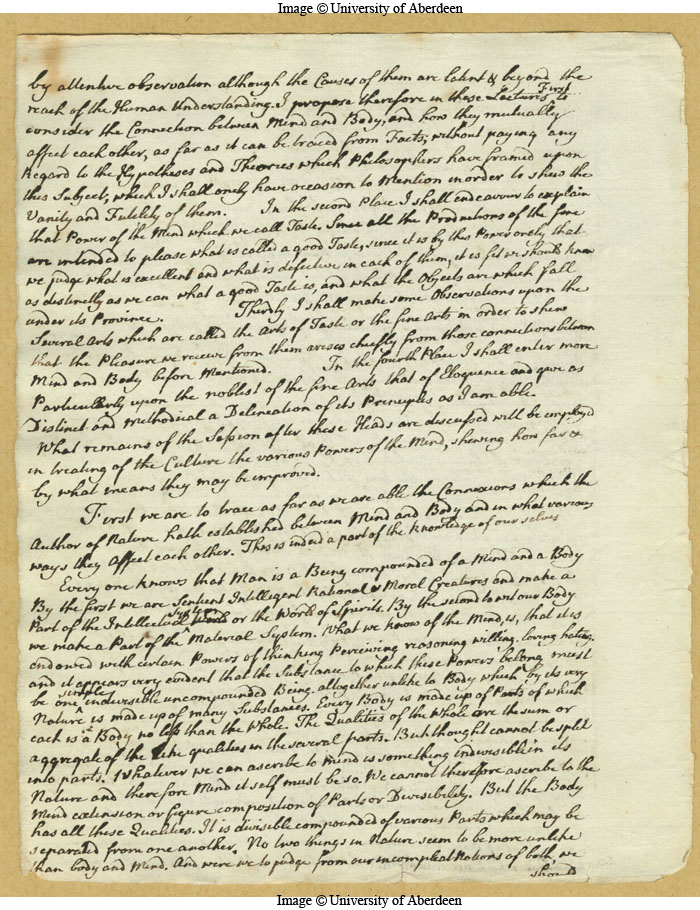 Image © University of Aberdeen
by attentive observation although the Causes of them are latent & beyond the
reach of the Human Understanding. I propose therefore in these Lectures First to
consider the Connection between Mind and Body, and how they mutually
affect each other, as far as it can be traced from Facts, without paying any
Regard to the Hypotheses and Theories which Philosophers have framed upon
this Subject, which I shall onely have occasion to Mention in order to shew the
Vanity and Futility of them. In the second Place I shall endeavour to explain
that Power of the Mind which we call Taste. Since all the Productions of the fine
are intended to please what is called a good Taste, since it is by this Power onely that
we judge what is excellent and what is defective in each of them, it is fit we should know
as distinctly as we can what a good Taste is, and what the Objects are which fall
under its Province. Thirdly I shall make some Observations upon the
Several Arts which are called the Arts of Taste or the fine Arts in order to shew
that the Pleasure we receive from them arises chiefly from those connections between
Mind and Body before Mentioned. In the fourth Place I shall enter more
Particularly upon the noblest of the fine Arts that of Eloquence and give as
Distinct and Methodical a Delineation of its Principles as I am able.
What remains of the Session after these Heads are discussed will be employd
in treating of the Culture the various Powers of the Mind, shewing how far &
by what means they may be improved.
First we are to trace as far as we are able the Connexions which the
Author of Nature hath established between Mind and Body and in what various
ways they affect each other. This is indeed a part of the knowledge of our selves
Every one knows that Man is a Being compounded of a Mind and a Body
By the first we are Sentient Intelligent Rational & Moral Creatures and make a
Part of the Intellectual System or the World of Spirits. By the second to wit our Body
we make a Part of the Material System. What we know of the Mind, is, that it is
endowed with certain Powers of thinking Perceiving reasoning willing loving hating,
and it appears very evident that the Substance to which these Powers belong must
be one simple indivisible uncompounded Being altogether unlike to Body which by its very
Nature is made up of many Substances. Every Body is made up of Parts of which
each is a Body no less than the Whole. The Qualities of the Whole are the sum or
aggregate of the like qualities in the several parts. But thought cannot be split
into parts. Whatever we can ascribe to mind is something indivisible in its
Nature and therefore Mind it self must be so. We cannot therefore ascribe to the
Mind extension or figure composition of Parts or Divisibility. But the Body
has all these Qualities. It is divisible compounded of various Parts which may be
separated from one another. No two things in Nature seem to be more unlike
than body and Mind. And were we to judge from our incompleat Notions of both, we
should
Image © University of Aberdeen